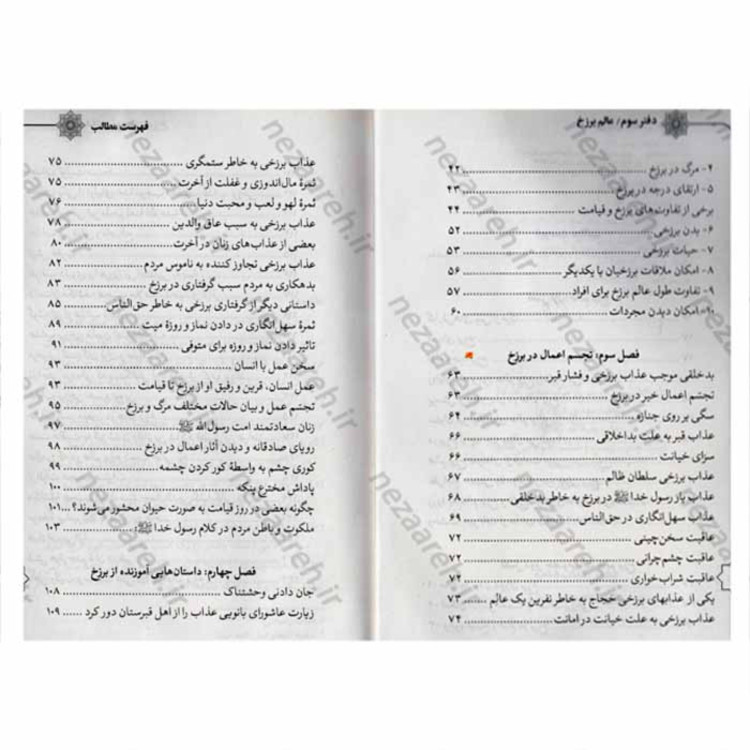 دفتر سوم/ عالم برزخ
۴- مرگ در برزخ ۴۲
۵- ارتقای درجه در برزخ ۴۳
برخی از تفاوت‌های برزخ و قیامت ۴۴
۶- بدن برزخی ۵۲
۷- حیات برزخی ۵۳
۸- امکان ملاقات برزخیان با یکدیگر ۵۶
۹- تفاوت طول عالم برزخ برای افراد ۵۷
۱۰- امکان دیدن مجردات ۶۰
فصل سوم: تجسم اعمال در برزخ
بدخلقی موجب عذاب برزخی و فشار قبر ۶۳
تجسّم اعمال خیر در برزخ ۶۳
سگی بر روی جنازه ۶۴
عذاب قبر به علت بداخلاقی ۶۶
سزای خیانت ۶۶
عذاب برزخی سلطان ظالم ۶۷
عذاب یار رسول خدا ﷺ در برزخ به خاطر بدخلقی ۶۸
عذاب سهل‌انگاری در حق‌الناس ۶۹
عاقبت سخن‌چینی ۷۲
عاقبت چشم‌چرانی ۷۲
عاقبت شراب‌خواری ۷۲
یکی از عذابهای برزخی حجاج به خاطر نفرین یک عالم ۷۳
عذاب برزخی به علت خیانت در امانت ۷۴
فهرست مطالب
عذاب برزخی به خاطر ستمگری ۷۵
ثمرهٔ مال‌اندوزی و غفلت از آخرت ۷۵
ثمرهٔ لهو و لعب و محبت دنیا ۷۶
عذاب برزخی به سبب عاق والدین ۷۸
بعضی از عذاب‌های زنان در آخرت ۸۰
عذاب برزخی تجاوز کننده به ناموس مردم ۸۲
بدهکاری به مردم سبب گرفتاری در برزخ ۸۳
داستانی دیگر از گرفتاری برزخی به خاطر حق‌الناس ۸۵
ثمرهٔ سهل‌انگاری در دادن نماز و روزهٔ میت ۸۹
تاثیر دادن نماز و روزه برای متوفی ۹۱
سخن عمل با انسان ۹۳
عمل انسان، قرین و رفیق او از برزخ تا قیامت ۹۳
تجسّم عمل و بیان حالات مختلف مرگ و برزخ ۹۵
زنان سعادتمند امت رسول‌الله ﷺ ۹۷
رویای صادقانه و دیدن آثار اعمال در برزخ ۹۸
کوری چشم به واسطهٔ کور کردن چشمه ۹۹
پاداش مخترع پنکه ۱۰۰
چگونه بعضی در روز قیامت به صورت حیوان محشور می‌شوند؟ ۱۰۱
ملکوت و باطن مردم در کلام رسول خدا ﷺ ۱۰۳
فصل چهارم: داستان‌هایی آموزنده از برزخ
جان دادنی وحشتناک ۱۰۸
زیارت عاشورای بانویی عذاب را از اهل قبرستان دور کرد ۱۰۹
nezaareh.ir